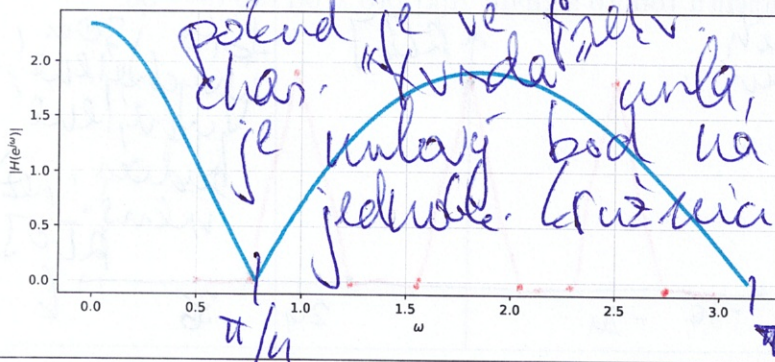 pokud je ve frekv.
char. "tvrdá" nula,
je nulový bod na
jednotk. kružnici
2.0
1.5
1.0
0.5
0.0
|H(e^jω)|
0.0 0.5 1.0 1.5 2.0 2.5 3.0
ω
π/4 π